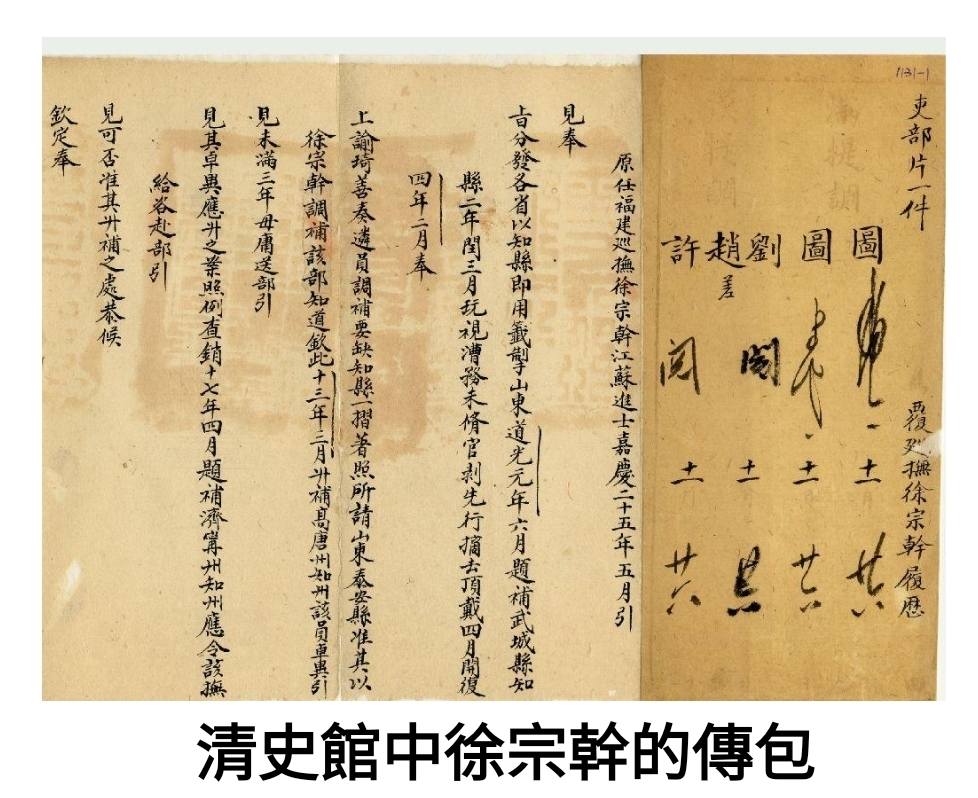 1131-1
吏部片一件
覆巡撫徐宗幹履歷
圖 一 十一 廿六
圖 十一 廿六
劉 閱 十一
趙 差
許 閱 十一 廿六
原任福建巡撫徐宗幹江蘇進士嘉慶二十五年五月引
見奉
旨分發各省以知縣即用籤掣山東道光元年六月題補武城縣知
縣二年閏三月玩視漕務未脩官剥先行摘去頂戴四月開復
四年二月奉
上諭琦善奏遴員調補要缺知縣一摺著照所請山東泰安縣准其以
徐宗幹調補該部知道欽此十三年三月升補高唐州知州該員卓異引
見未滿三年毋庸送部引
見其卓異應升之案照例查銷十七年四月題補濟甯州知州應令該撫
給咨赴部引
見可否准其升補之處恭候
欽定奉
清史館中徐宗幹的傳包